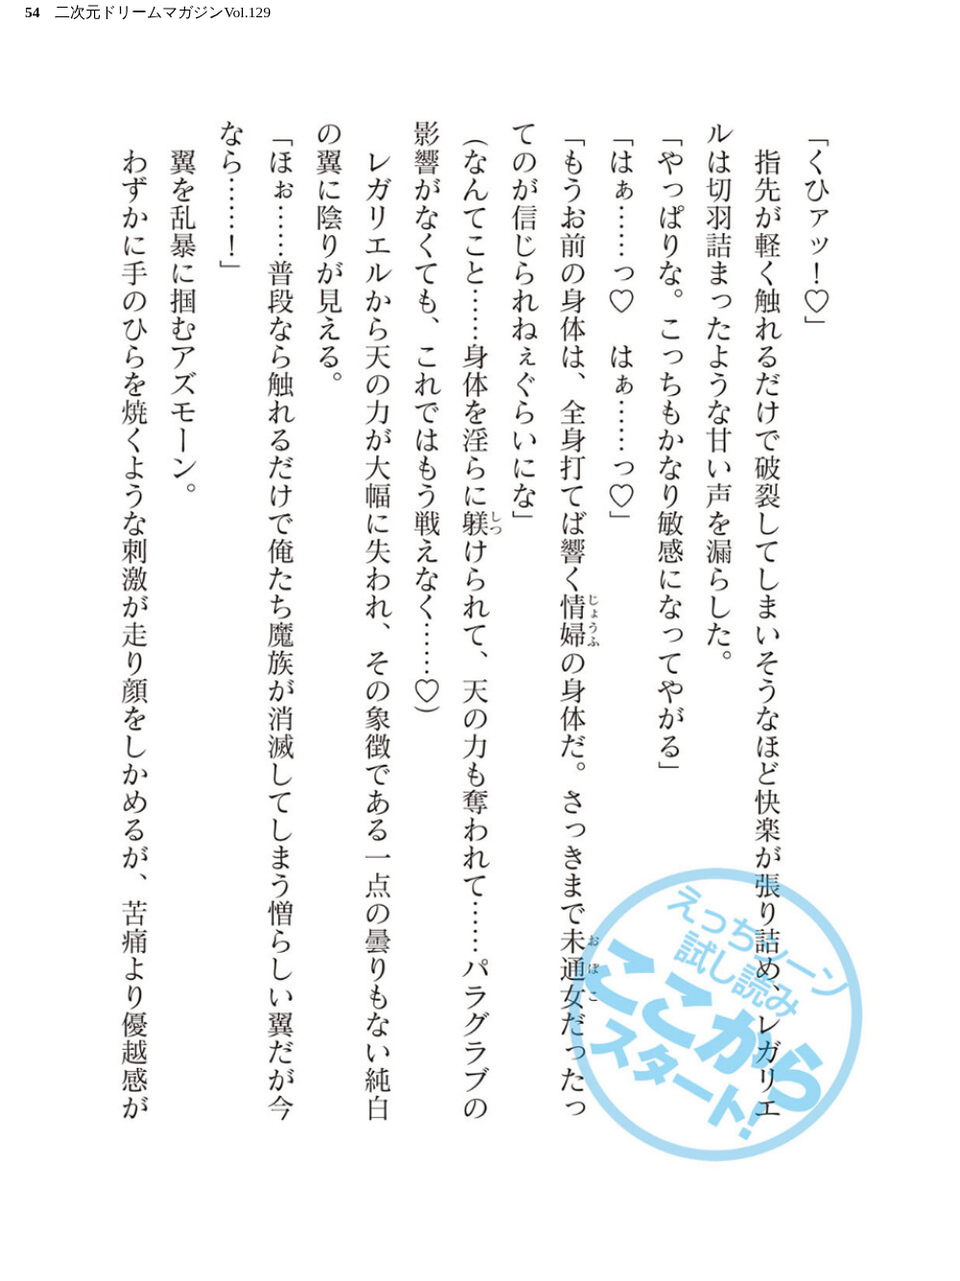 54 二次元ドリームマガジンVol.129
「くひァッ！♡」
　指先が軽く触れるだけで破裂してしまいそうなほど快楽が張り詰め、レガリエ
ルは切羽詰まったような甘い声を漏らした。
「やっぱりな。こっちもかなり敏感になってやがる」
「はぁ……っ♡　はぁ……っ♡」
「もうお前の身体は、全身打てば響く情婦の身体だ。さっきまで未通女だったっ
じょうふ
おぼこ
てのが信じられねぇぐらいにな」
（なんてこと……身体を淫らに躾けられて、天の力も奪われて……パラグラブの
しつ
影響がなくても、これではもう戦えなく……♡）
　レガリエルから天の力が大幅に失われ、その象徴である一点の曇りもない純白
の翼に陰りが見える。
「ほぉ……普段なら触れるだけで俺たち魔族が消滅してしまう憎らしい翼だが今
なら……！」
　翼を乱暴に掴むアズモーン。
　わずかに手のひらを焼くような刺激が走り顔をしかめるが、苦痛より優越感が
えっちシーン
試し読み
ここから
スタート！